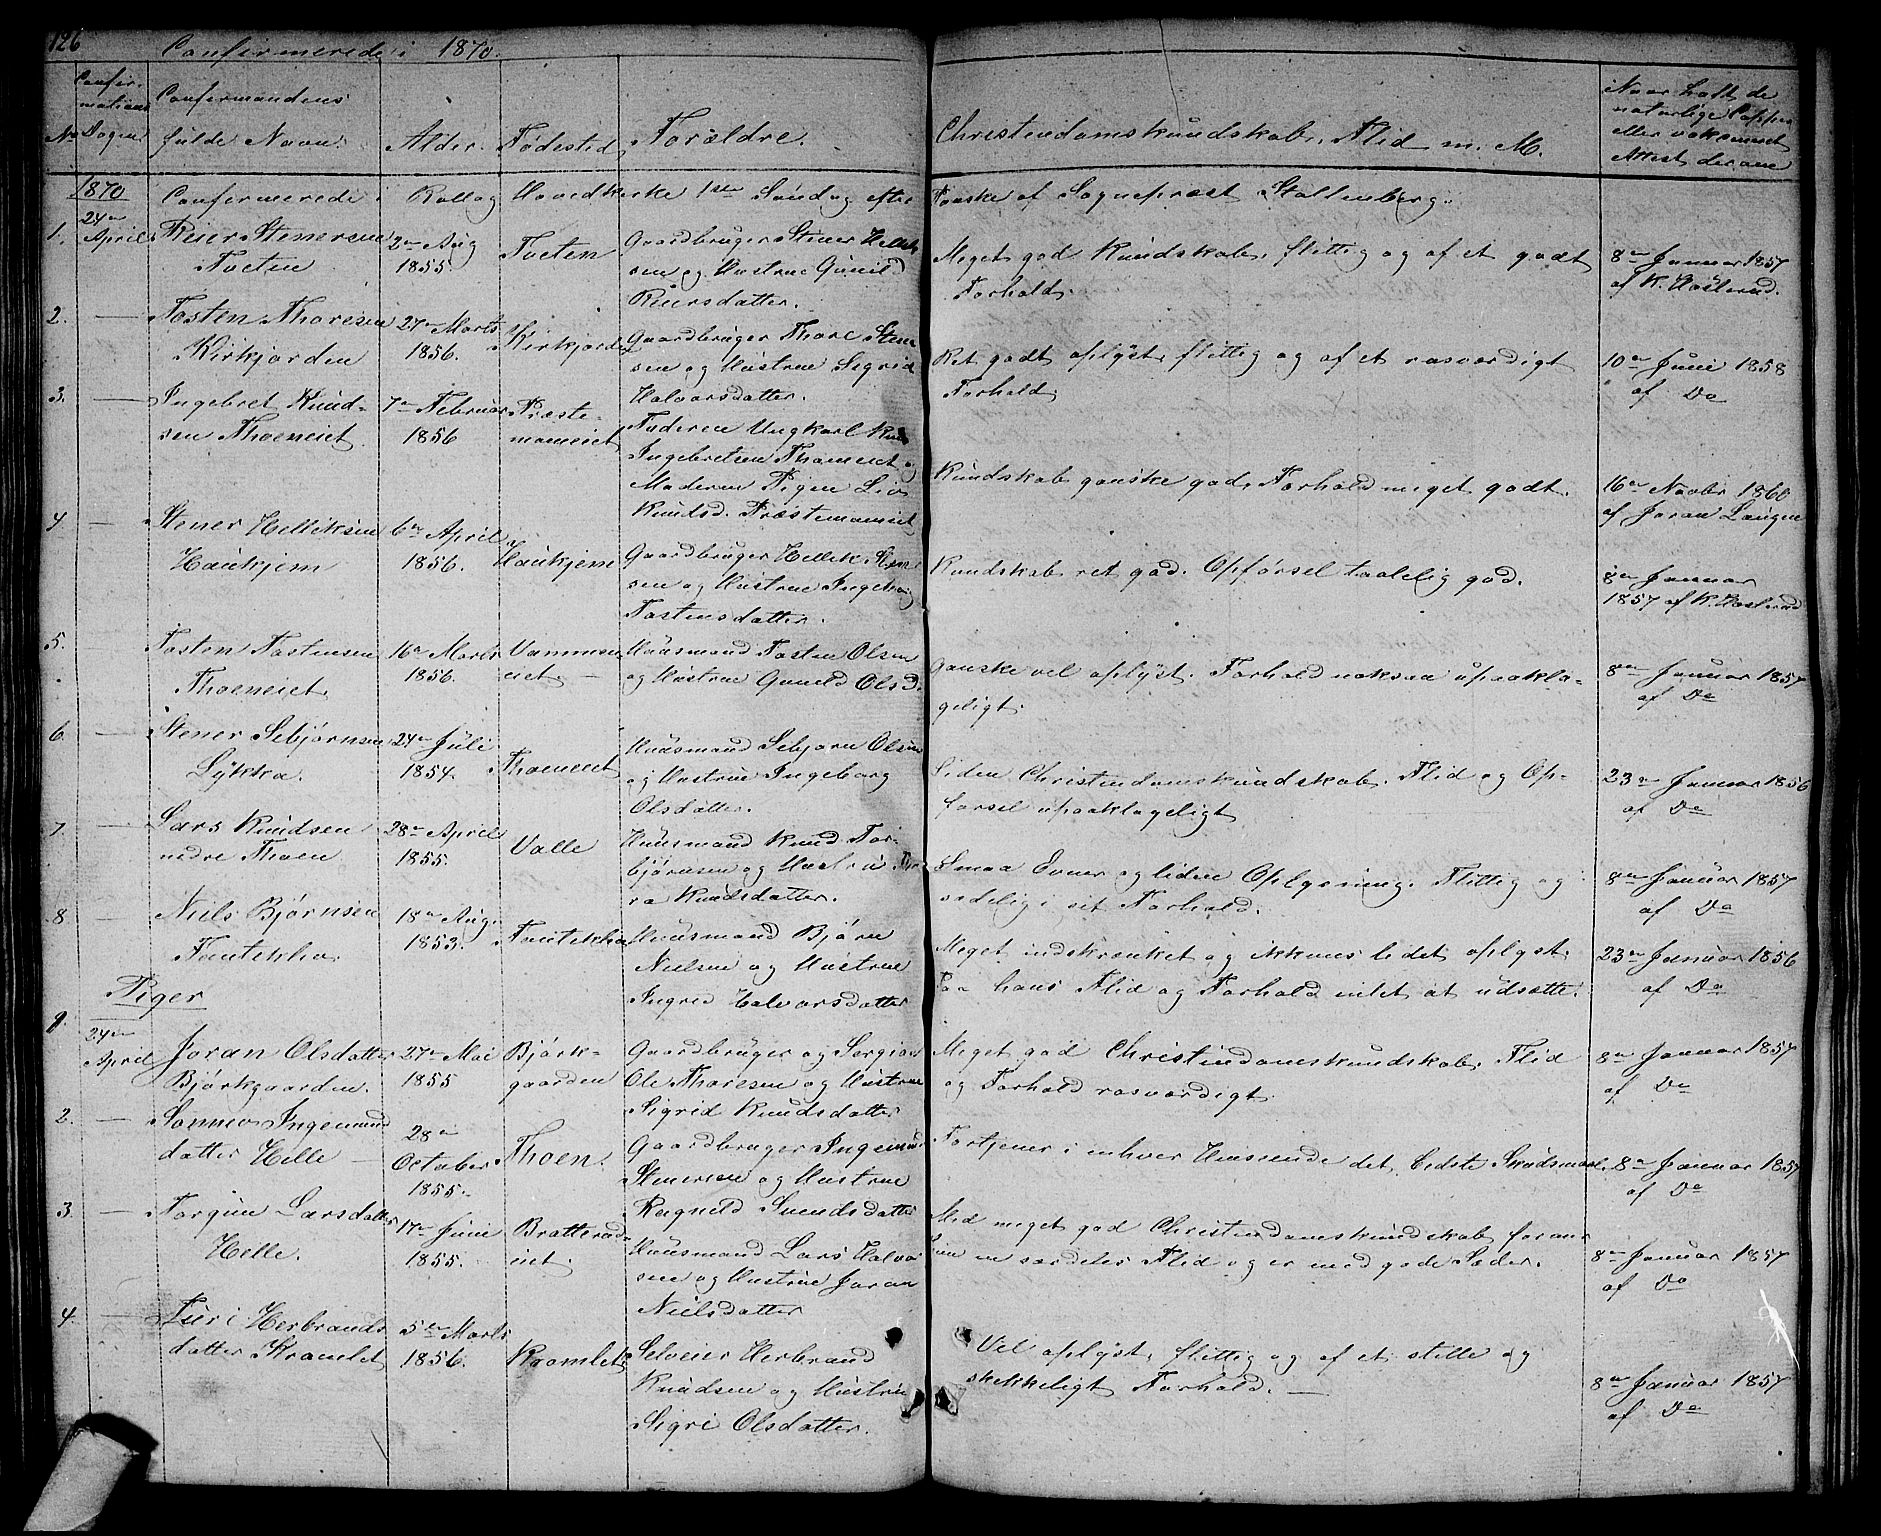 126
Confirmerede i 1870.
Confir-
mations
Dagen
No
Confirmandens
fulde Navn.
Alder.
Fødested
Forældre.
Christendomskundskab, Flid m. M.
Naar haft de
naturlige Copper
eller vakcineret
Attest derom
1870 Confirmerede i Rollag Hovedkirke 1ste Søndag efter Paaske af Sognepræst Stoltenberg.
1. 24de April
Reier Stenersen
Tveten
2den Aug
1855.
Tveten
Gaardbruger Stener Hellek-
sen og Hustrue Gunild
Reiersdatter.
Meget god Kundskab, flittig og af et godt
Forhold.
8de Januar 1857
af K. Haslerud.
2. —
Tosten Thoresen
Kirkjorden
27de Marts
1856.
Kirkjorden
Gaardbruger Thore Sten-
sen og Hustrue Sigrid
Halvorsdatter.
Ret godt oplyst, flittig og af et rosværdigt
Forhold.
10de Juni 1858
af Do
3. —
Ingebret Knud-
sen Thoeneiet
7de Februar
1856
Præste-
moeneiet
Faderen Ungkarl Knud
Ingebretsen Thoeneiet og
Moderen Pigen Liv
Knudsd. Præstemoeneiet
Kundskab ganske god, Forhold meget godt.
16de Novbr 1860
af Joran Laugen
4 —
Stener Helleksen
Haukjem
6te April
1856.
Haukjem
Gaardbruger Hellek Sten-
sen og Hustrue Ingeborg
Tostensdatter.
Kundskab ret god. Opførsel taalelig god.
8de Januar
1857 af K. Haslerud
5. —
Tosten Tostensen
Thoeneiet
16de Marts
1856.
Vammen-
eiet —
Huusmand Tosten Olsen
og Hustrue Gunild Olsd.
Ganske vel oplyst. Forhold noksaa upaakla-
geligt.
8de Januar 1857
af Do
6. —
Stener Sebjørnsen
Lykkja.
24de Juli
1854.
Thoeneiet
Huusmand Sebjørn Olsen
og Hustrue Ingeborg
Olsdatter.
Liden Christendomskundskab. Flid og Op-
førsel upaaklageligt
23de Januar 1856
af Do
7. —
Lars Knudsen
nedre Thoen
28de April
1855.
Valle
Huusmand Knud Tor-
bjørnsen og Hustrue
Knudsdatter.
Smaa Evner og liden Oplysning. Flittig og
sædelig i sit Forhold.
8de Januar 1857
af Do
8. —
Niels Bjørnsen
Fantekha.
18de Aug.
1853.
Fantekha
Huusmand Bjørn
Nielsen og Hustrue
Ingrid Halvorsdatter
Meget indskrænket og ikkuns lidet oplyst.
Paa hans Flid og Forhold intet at udsætte.
23de Januar 1856
af Do
Piger
1. 24de
April
Joran Olsdatter
Bjørkgaarden.
27de Mai
1855
Bjørk-
gaarden
Gaardbruger og Sergiant
Ole Thoresen og Hustrue
Sigrid Knudsdatter
Meget god Christendomskundskab. Flid
og Forhold rosværdigt.
8de Januar 1857
af Do
2. —
Sønnev Ingemund
datter Helle —
28de
October
1855.
Thoen.
Gaardbruger Ingemund
Stenersen og Hustrue
Ragnild Svendsdatter
Fortjener i enhver Henseende det bedste Skudsmaal.
8de Januar 1857
af Do
3. —
Torgun Larsdatter
Helle.
17de Juni
1855.
Bratterud-
eiet.
Huusmand Lars Halvor-
sen og Hustrue Joran
Nielsdatter
Med meget god Christendomskundskab foran-
en særdeles Flid og er med gode Sæder.
8de Januar 1857
af Do
4. —
Turi Herbrands
datter Kromlet
5te Marts
1856.
Kromlet
Selveier Herbrand
Knudsen og Hustrue
Sigri Olsdatter.
Vel oplyst, flittig og af et stille og
skikkeligt Forhold. —
8de Januar 1857
af Do